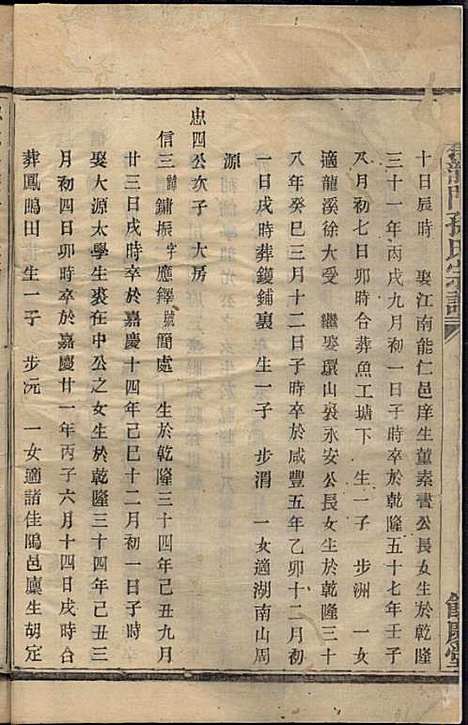 孫氏宗譜
餘慶堂
十日辰時　娶江南能仁邑庠生董素書公長女生於乾隆
三十一年丙戌九月初一日子時卒於乾隆五十七年壬子
八月初七日卯時合葬魚工塘下　生一子　步洲　一女
適龍溪徐大受　繼娶環山裘永安公長女生於乾隆三十
八年癸巳三月十二日子時卒於咸豐五年乙卯十二月初
一日戌時葬鑊鋪裏　生一子　步渭　一女適湖南山周
源
忠四公次子　大房
信三諱鏞振字應鐸號簡處　生於乾隆三十四年己丑九月
廿三日戌時卒於嘉慶十四年己巳十二月初一日子時
娶大源太學生裘在中公之女生於乾隆三十四年己丑三
月初四日卯時卒於嘉慶廿一年丙子六月十四日戌時合
葬鳳鳴田　生一子　步沅　一女適諸佳隝邑廩生胡定